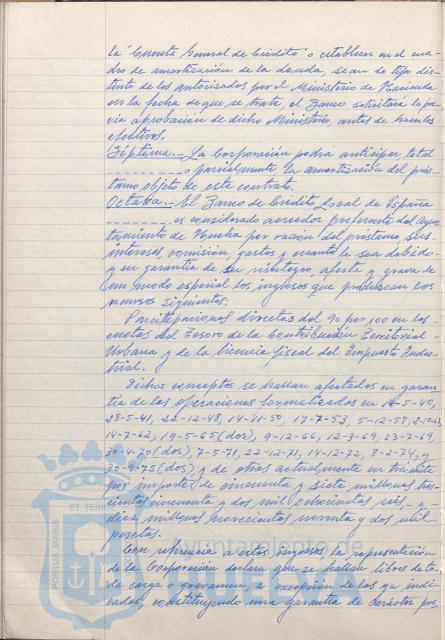 la "Cuenta General de Crédito" o establecen en el cua-
dro de amortización de la deuda, sean de tipo dis-
tinto de los autorizados por el Ministerio de Hacienda
en la fecha de que se trate, el Banco solicitará la pre-
via aprobación de dicho Ministerio, antes de hacerlos
efectivos.
Séptima.- La Corporación podrá anticipar total
o parcialmente la amortización del prés-
tamo objeto de este contrato.
Octava.- El Banco de Crédito Local de España
es considerado acreedor preferente del Ayun-
tamiento de Huelva por razón del préstamo, sus
intereses, comisión, gastos y cuanto le sea debido
y en garantía de su reintegro, afecta y grava de
un modo especial los ingresos que produzcan los
recursos siguientes:
Participaciones directas del 90 por 100 en las
cuotas del Tesoro de la Contribución Territorial
Urbana y de la licencia fiscal del Impuesto Indus-
trial.
Dichos conceptos se hallan afectados en garan-
tía de las operaciones formalizadas en 14-5-40,
28-5-41, 22-12-48, 14-11-50, 17-7-53, 5-12-58,
14-7-62, 19-5-65 (dos), 9-12-66, 12-8-69, 23-7-69,
30-4-70 (dos), 7-5-71, 22-12-71, 14-12-72, 8-2-74, y
30-9-75 (dos) y de otras actualmente en trámite
por importe de cincuenta y siete millones tres-
cientas cincuenta y dos mil ochocientas seis, y
diez millones novecientas noventa y dos mil
pesetas.
Con referencia a estos ingresos, la representación
de la Corporación declara que se hallan libres de to-
da carga o gravamen, a excepción de los ya indi-
cados, constituyendo una garantía de carácter pre
Ayuntamiento de
HUELVA
PORTUS MARIS
ET TERRAE